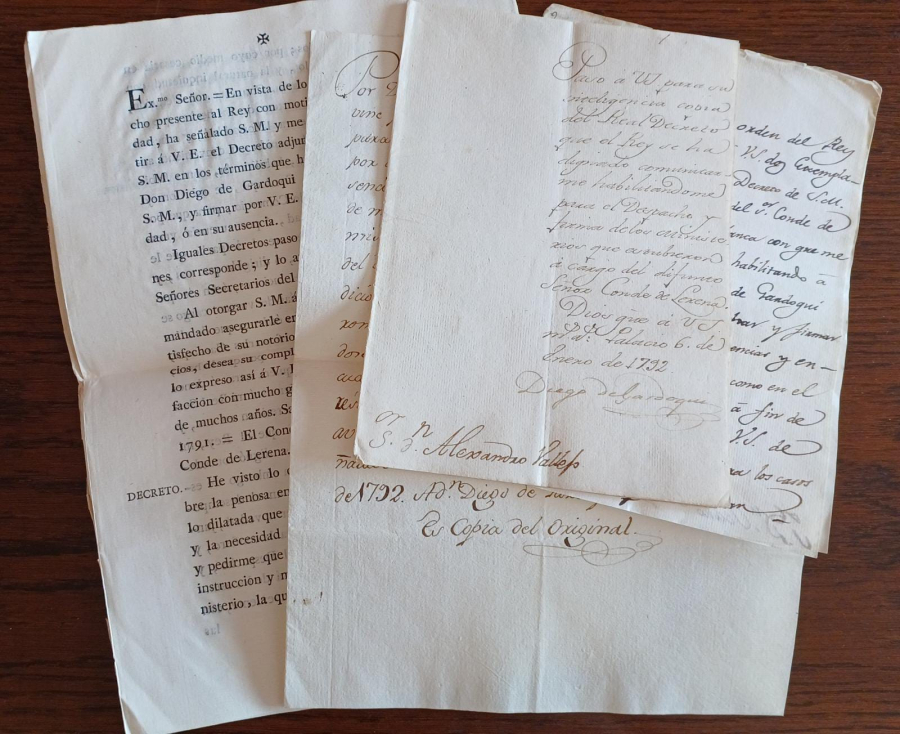 Ex.mo Señor.=En vista de lo
cho presente al Rey con moti
dad, ha señálado S. M. y me
tir á V. E. el Decreto adjun
S. M. en los términos que h
Don Diego de Gardoqui
S. M., y firmar por V. E.
dad, ó en su ausencia.
Iguales Decretos paso
nes corresponde; y lo a
Señores Secretarios del
Al otorgar S. M. á
mandado asegurarle en
tisfecho de su notorio
cios, desea su compl
lo expreso así á V. E
faccion con mucho g
de muchos años. Sa
1791. = El Cond
Conde de Lerena.
DECRETO.= He visto lo
bre la penosa en
lo dilatada que
y la necesidad
y pedirme que
instruccion y m
nisterio, la qu
las
Por
vine
para
por
senci
de m
mis
del
dició
rom
don
cuc
de 1792. A Dn. Diego de
Es Copia del Original.
Paso á VS para su
inteligencia copia
del Real Decreto
que el Rey se ha
dignado comunicar-
me habilitandome
para el Despacho y
firma de los Ministe
rios que estubieron
á cargo del difunto
Señor Conde de Lerena.
Dios gue. á VS.
m.s a.s Palacio 6. de
Enero de 1792
Diego de Gardoqui
S.or D.n Alexandro Vallejo
orden del Rey
VS. dos Exempla-
Decreto de S.M.
del S.or Conde de
con que me
habilitando á
de Gardoqui
y firmar
y en-
como en el
á fin de
VS. de
los casos